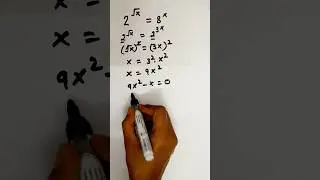 2^√x = 8^x
2^√x = 2^3x
(√x)² = (3x)²
x = 3²·x²
x = 9x²
9x² - x = 0